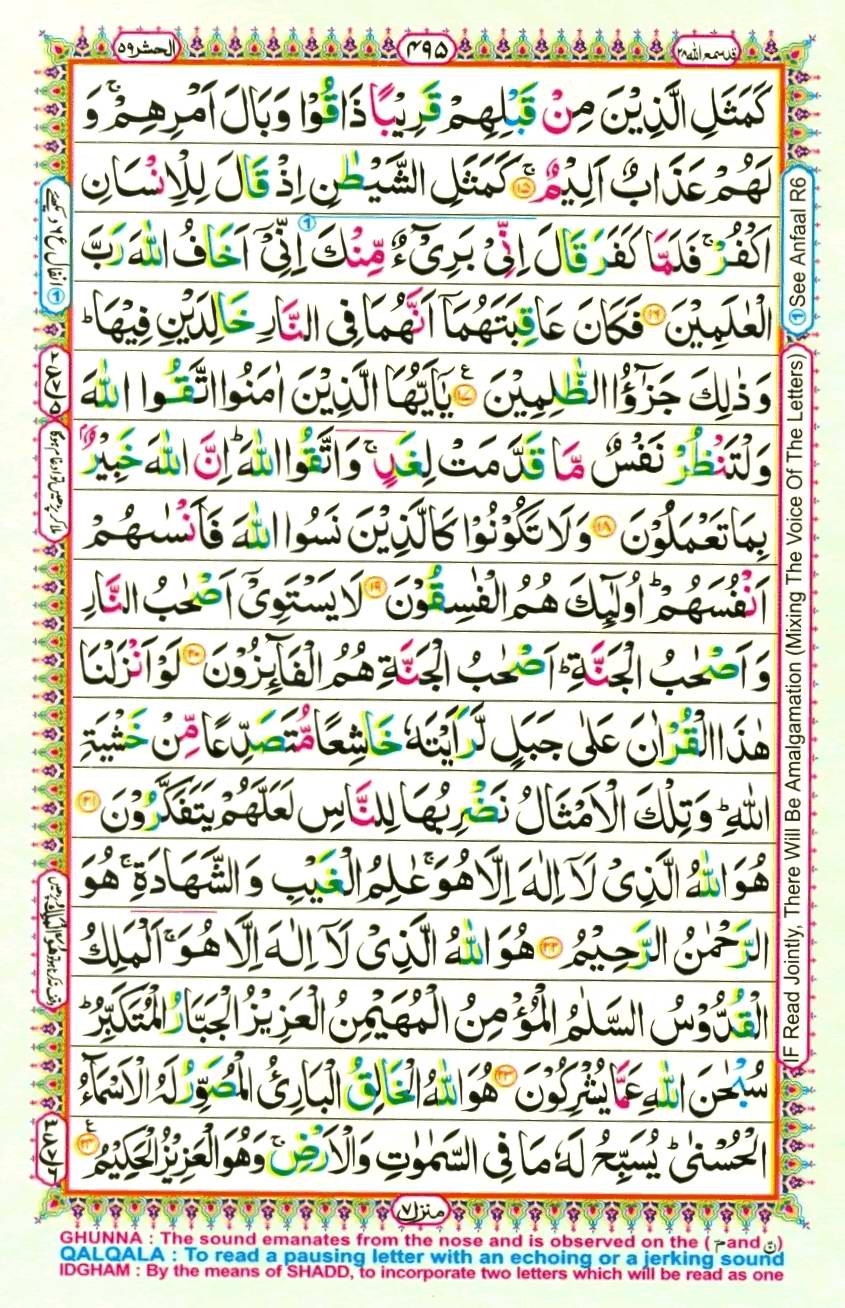 قد سمع الله ٢٨
٤٩٥
الحشر ٥٩
كَمَثَلِ الَّذِیْنَ مِنْ قَبْلِهِمْ قَرِیْبًا ذَاقُوْا وَبَالَ اَمْرِهِمْ ۚ وَ
لَهُمْ عَذَابٌ اَلِیْمٌ ۚ ١٥ كَمَثَلِ الشَّیْطٰنِ اِذْ قَالَ لِلْاِنْسَانِ
اكْفُرْ ۚ فَلَمَّا كَفَرَ قَالَ اِنِّیْ بَرِیْٓءٌ مِّنْكَ اِنِّیْۤ اَخَافُ اللّٰهَ رَبَّ
الْعٰلَمِیْنَ ١٦ فَكَانَ عَاقِبَتَهُمَاۤ اَنَّهُمَا فِی النَّارِ خَالِدَیْنِ فِیْهَا ؕ
وَذٰلِكَ جَزٰٓؤُا الظّٰلِمِیْنَ ١٧ یٰۤاَیُّهَا الَّذِیْنَ اٰمَنُوا اتَّقُوا اللّٰهَ
وَلْتَنْظُرْ نَفْسٌ مَّا قَدَّمَتْ لِغَدٍ ۚ وَاتَّقُوا اللّٰهَ ؕ اِنَّ اللّٰهَ خَبِیْرٌۢ
بِمَا تَعْمَلُوْنَ ١٨ وَلَا تَكُوْنُوْا كَالَّذِیْنَ نَسُوا اللّٰهَ فَاَنْسٰىهُمْ
اَنْفُسَهُمْ ؕ اُولٰٓىِٕكَ هُمُ الْفٰسِقُوْنَ ١٩ لَا یَسْتَوِیْۤ اَصْحٰبُ النَّارِ
وَاَصْحٰبُ الْجَنَّةِ ؕ اَصْحٰبُ الْجَنَّةِ هُمُ الْفَآىِٕزُوْنَ ٢٠ لَوْ اَنْزَلْنَا
هٰذَا الْقُرْاٰنَ عَلٰی جَبَلٍ لَّرَاَیْتَهٗ خَاشِعًا مُّتَصَدِّعًا مِّنْ خَشْیَةِ
اللّٰهِ ؕ وَتِلْكَ الْاَمْثَالُ نَضْرِبُهَا لِلنَّاسِ لَعَلَّهُمْ یَتَفَكَّرُوْنَ ٢١
هُوَ اللّٰهُ الَّذِیْ لَاۤ اِلٰهَ اِلَّا هُوَ ۚ عٰلِمُ الْغَیْبِ وَالشَّهَادَةِ ۚ هُوَ
الرَّحْمٰنُ الرَّحِیْمُ ٢٢ هُوَ اللّٰهُ الَّذِیْ لَاۤ اِلٰهَ اِلَّا هُوَ ۚ اَلْمَلِكُ
الْقُدُّوْسُ السَّلٰمُ الْمُؤْمِنُ الْمُهَیْمِنُ الْعَزِیْزُ الْجَبَّارُ الْمُتَكَبِّرُ ؕ
سُبْحٰنَ اللّٰهِ عَمَّا یُشْرِكُوْنَ ٢٣ هُوَ اللّٰهُ الْخَالِقُ الْبَارِئُ الْمُصَوِّرُ لَهُ الْاَسْمَآءُ
الْحُسْنٰی ؕ یُسَبِّحُ لَهٗ مَا فِی السَّمٰوٰتِ وَالْاَرْضِ ۚ وَهُوَ الْعَزِیْزُ الْحَكِیْمُ ٢٤
منزل ٧
1 See Anfaal R6
IF Read Jointly, There Will Be Amalgamation (Mixing The Voice Of The Letters)
GHUNNA : The sound emanates from the nose and is observed on the ( مّ and نّ )
QALQALA : To read a pausing letter with an echoing or a jerking sound
IDGHAM : By the means of SHADD, to incorporate two letters which will be read as one